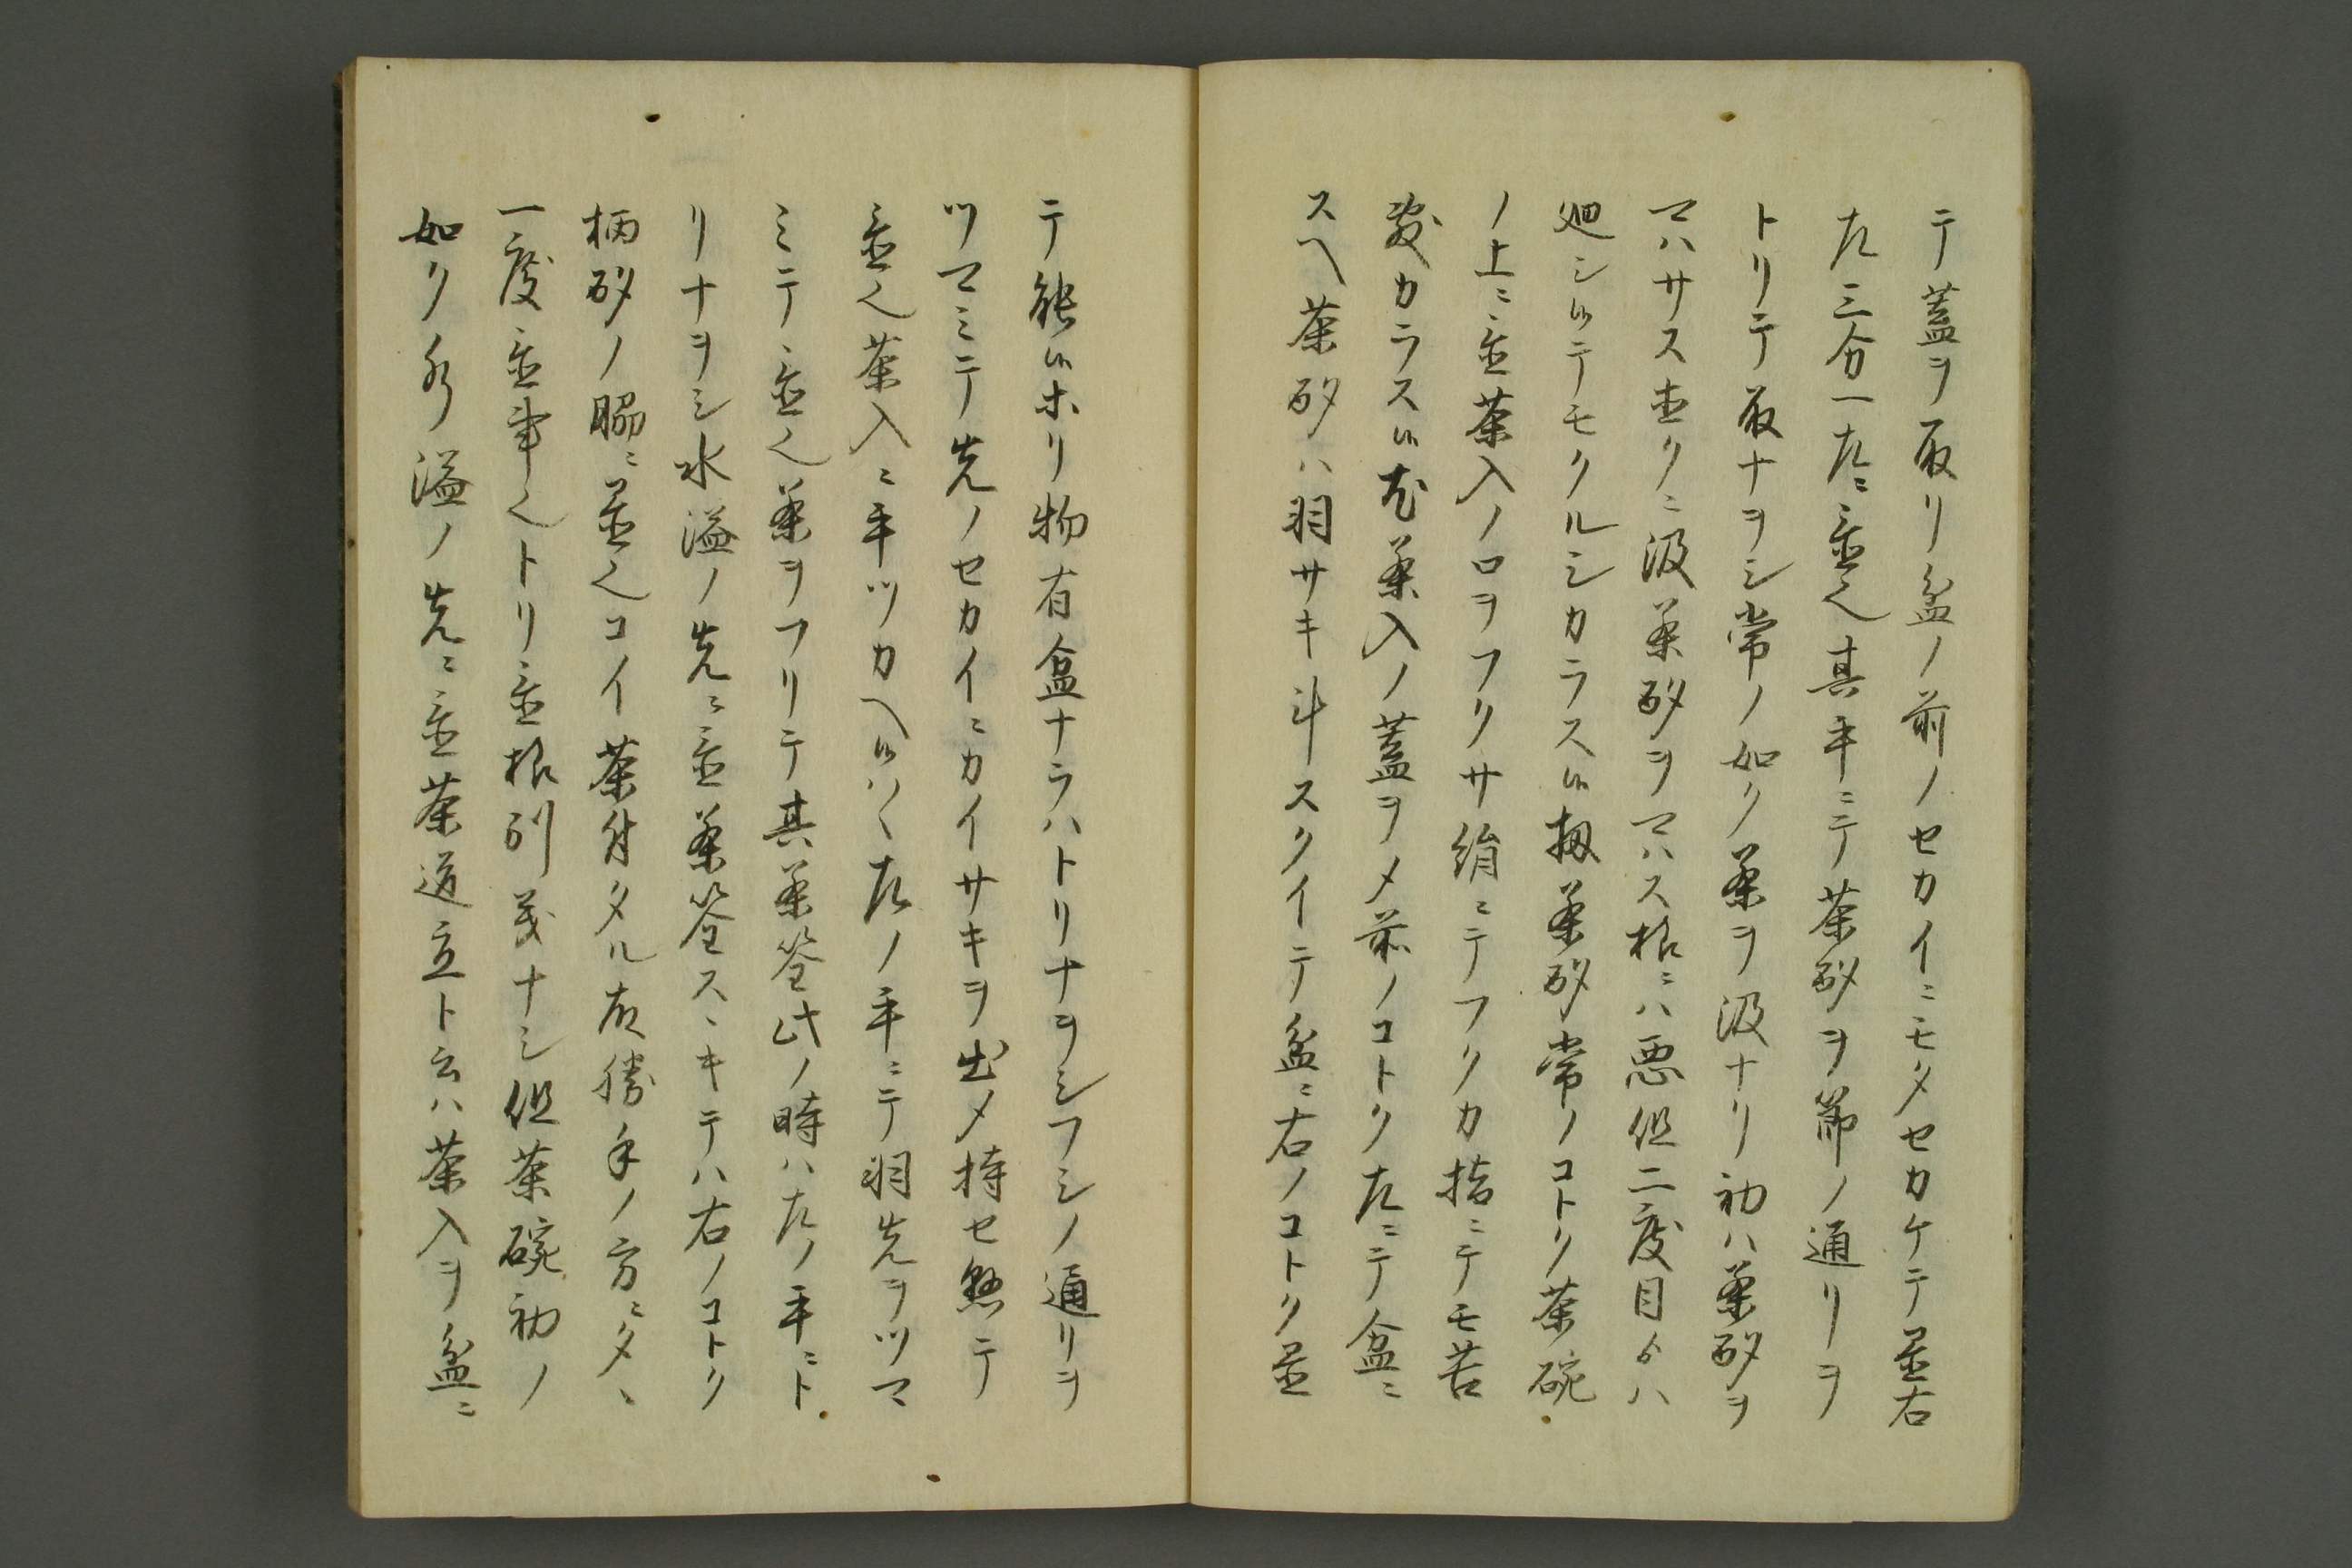 テ蓋ヲ取リ盆ノ前ノセカイニモタセカケテ置右
左三分一左ニ置く其手ニテ茶杓ヲ節ノ通リヲ
トリテ取ナヲシ常ノ如ク茶ヲ汲ナリ初ハ茶杓ヲ
マハサス直クニ汲茶杓ヲマハス様ニハ悪但二度目ゟハ
廻シ候テモクルシカラス候扨茶杓常ノコトク茶碗
ノ上ニ置茶入ノ口ヲフクサ絹ニテフクカ指ニテモ苦
敷カラス候茶入ノ蓋ヲメ前ノコトク左ニテ盆ニ
スヘ茶杓ハ羽サキ斗スクイテ盆ニ右ノコトク置
テ能候ホリ物有盆ナラハトリナヲシフシノ通リヲ
ツマミテ先ノセカイニカイサキヲ出メ持セ懸テ
置く茶入ニ手ツカヘ候ハヽ左ノ手ニテ羽先ヲツマ
ミテ置く茶ヲフリテ其茶筌此ノ時ハ左ノ手ニト
リナヲシ水溢ノ先ニ置茶筌スヽキテハ右ノコトク
柄杓ノ脇ニ置くコイ茶付タル故勝手ノ方ニタヽ
一度置事くトリ置様別義ナシ但茶碗初ノ
如ク水溢ノ先ニ置茶道立ト云ハ茶入ヲ盆ニ